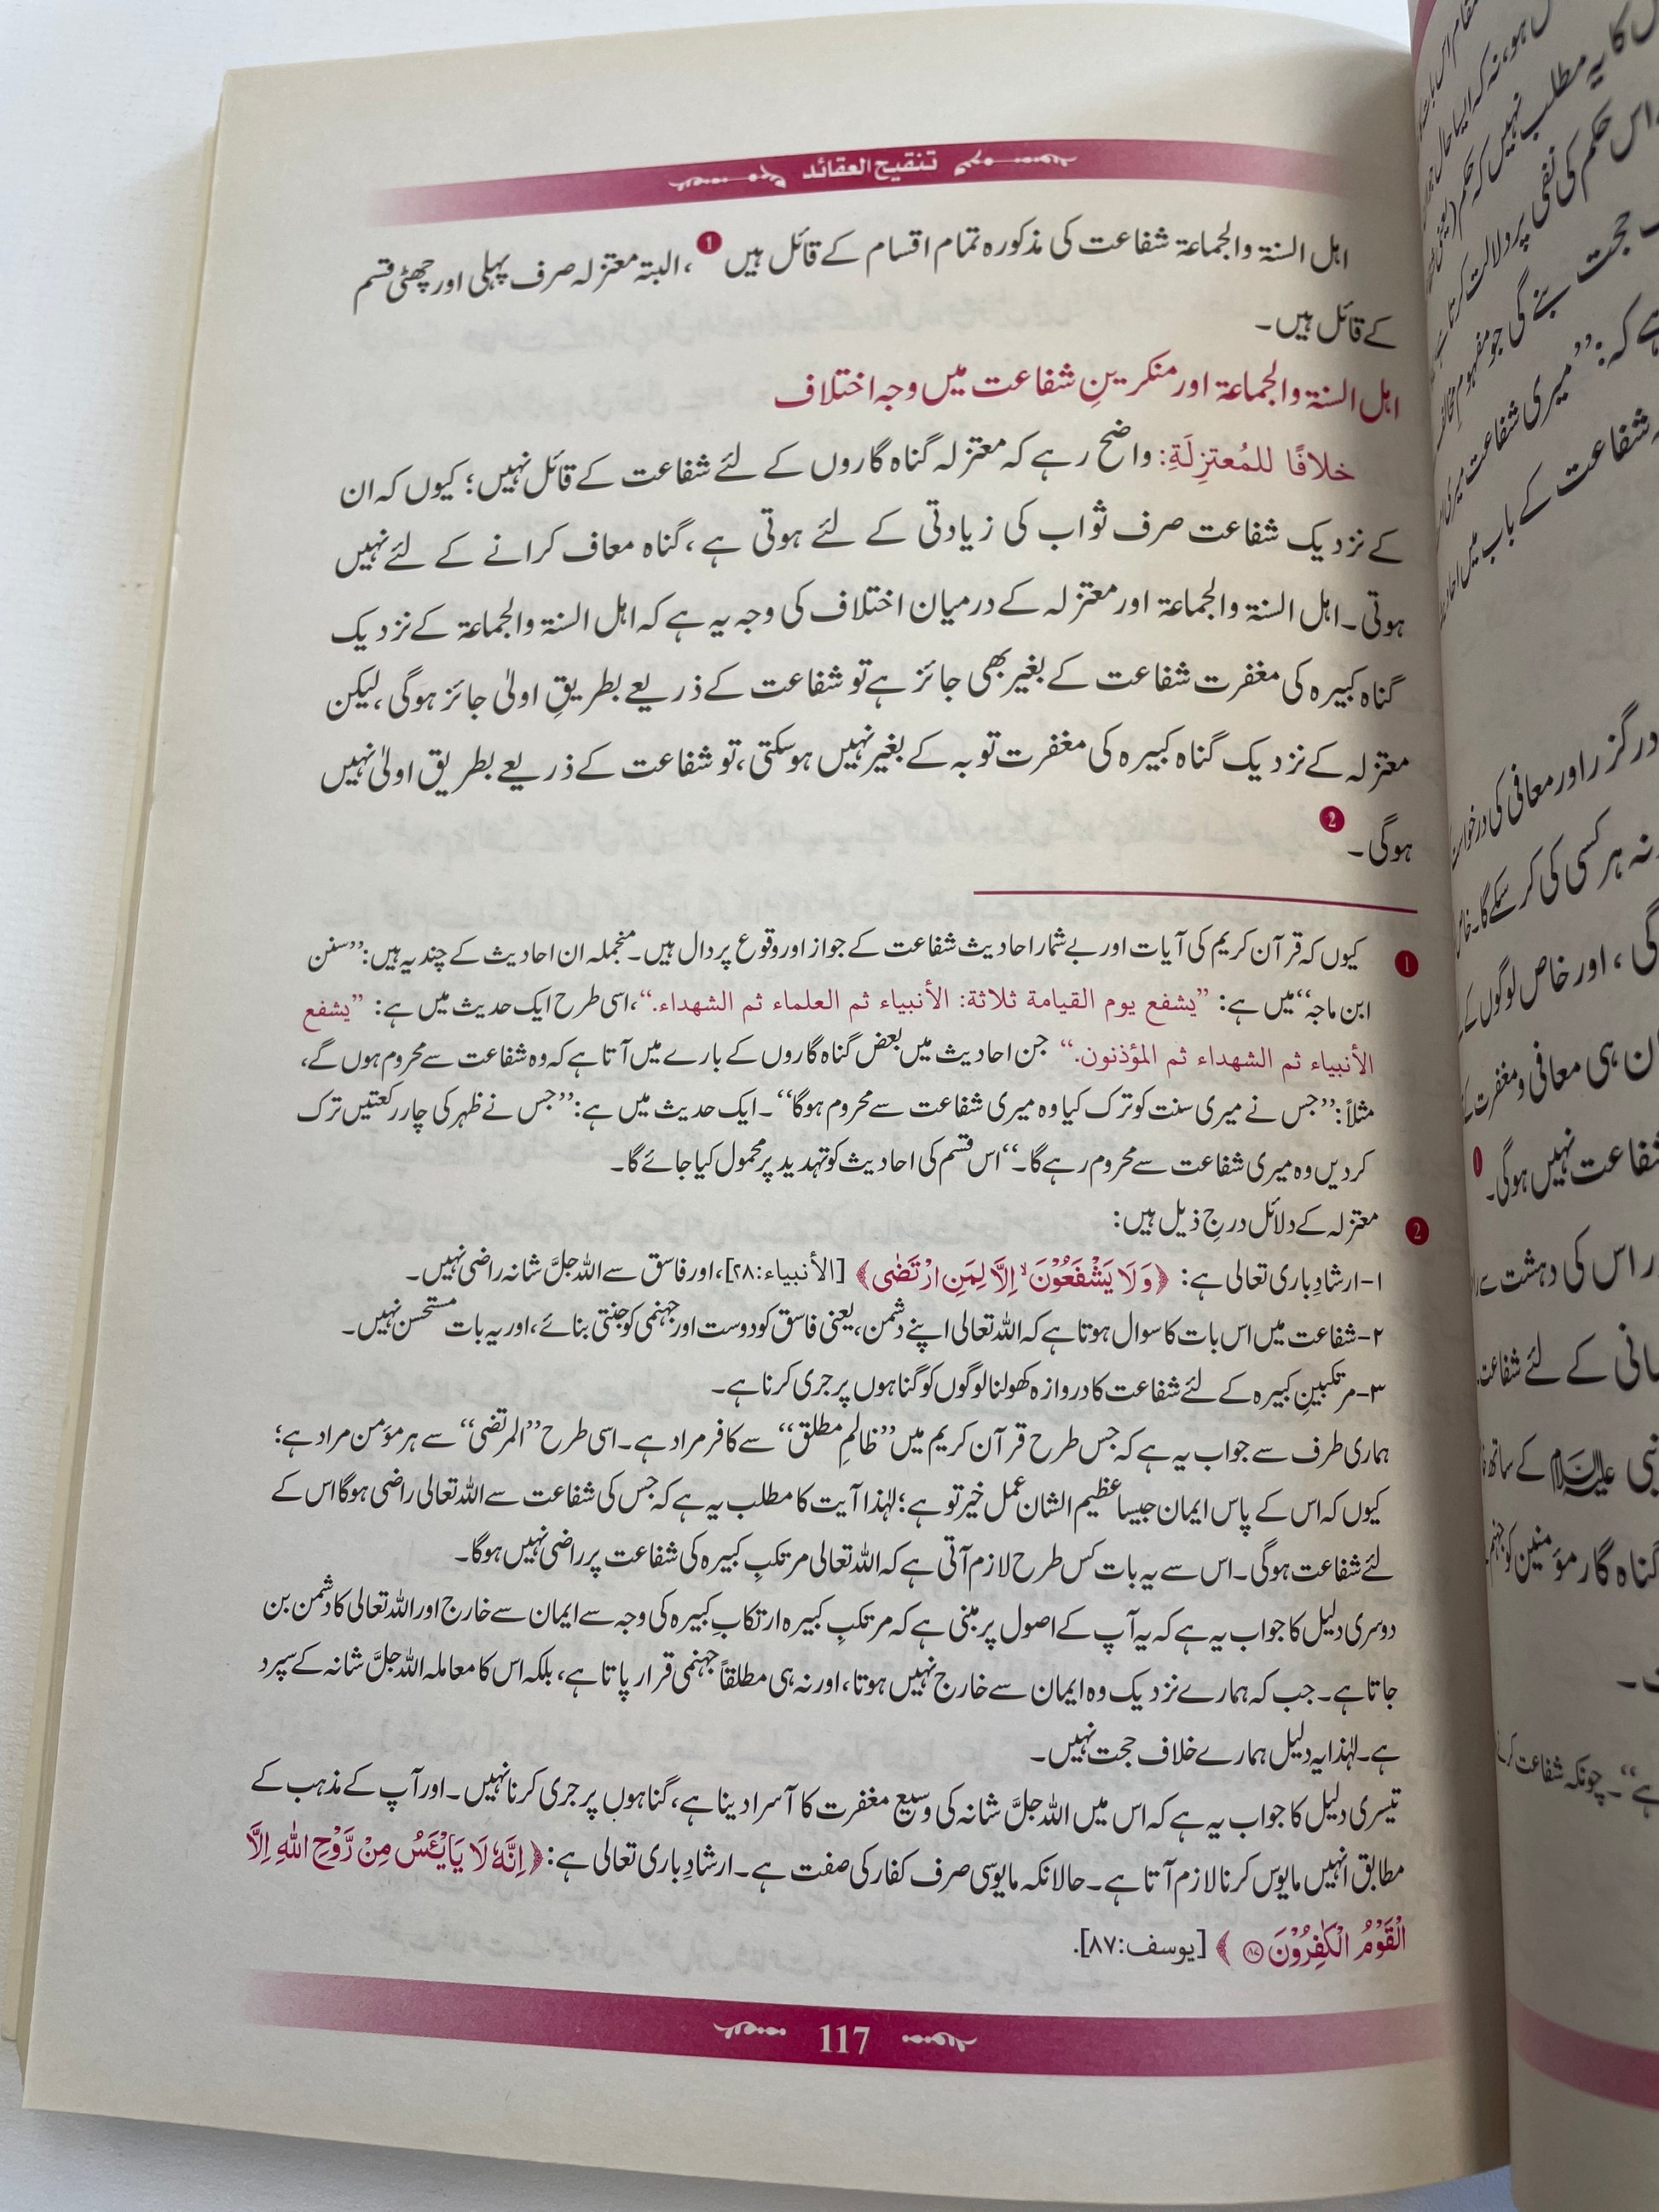 تنقیح العقائد
اہل السنۃ والجماعۃ شفاعت کی مذکورہ تمام اقسام کے قائل ہیں 1 ، البتہ معتزلہ صرف پہلی اور چھٹی قسم
کے قائل ہیں۔
اہل السنۃ والجماعۃ اور منکرینِ شفاعت میں وجہ اختلاف
خلافًا للمُعتزِلَةِ: واضح رہے کہ معتزلہ گناہ گاروں کے لئے شفاعت کے قائل نہیں؛ کیوں کہ ان
کے نزدیک شفاعت صرف ثواب کی زیادتی کے لئے ہوتی ہے، گناہ معاف کرانے کے لئے نہیں
ہوتی۔ اہل السنۃ والجماعۃ اور معتزلہ کے درمیان اختلاف کی وجہ یہ ہے کہ اہل السنۃ والجماعۃ کے نزدیک
گناہ کبیرہ کی مغفرت شفاعت کے بغیر بھی جائز ہے تو شفاعت کے ذریعے بطریقِ اولیٰ جائز ہوگی، لیکن
معتزلہ کے نزدیک گناہ کبیرہ کی مغفرت توبہ کے بغیر نہیں ہوسکتی، تو شفاعت کے ذریعے بطریق اولیٰ نہیں
ہوگی۔ 2
1 کیوں کہ قرآن کریم کی آیات اور بے شمار احادیث شفاعت کے جواز اور وقوع پر دال ہیں۔ منجملہ ان احادیث کے چند یہ ہیں: ’’سنن
ابن ماجہ‘‘ میں ہے: ”يشفع يوم القيامة ثلاثة: الأنبياء ثم العلماء ثم الشهداء.“، اسی طرح ایک حدیث میں ہے: ”يشفع
الأنبياء ثم الشهداء ثم المؤذنون.“ جن احادیث میں بعض گناہ گاروں کے بارے میں آتا ہے کہ وہ شفاعت سے محروم ہوں گے،
مثلاً: ’’جس نے میری سنت کو ترک کیا وہ میری شفاعت سے محروم ہوگا‘‘۔ ایک حدیث میں ہے: ’’جس نے ظہر کی چار رکعتیں ترک
کردیں وہ میری شفاعت سے محروم رہے گا۔‘‘ اس قسم کی احادیث کو تہدید پر محمول کیا جائے گا۔
2 معتزلہ کے دلائل درجِ ذیل ہیں:
۱- ارشادِ باری تعالی ہے: ﴿وَلَا يَشْفَعُوْنَ ۙ اِلَّا لِمَنِ ارْتَضٰى﴾ [الأنبياء:۲۸]، اور فاسق سے اللہ جلَّ شانہ راضی نہیں۔
۲- شفاعت میں اس بات کا سوال ہوتا ہے کہ اللہ تعالی اپنے دشمن، یعنی فاسق کو دوست اور جہنمی کو جنتی بنائے، اور یہ بات مستحسن نہیں۔
۳- مرتکبینِ کبیرہ کے لئے شفاعت کا دروازہ کھولنا لوگوں کو گناہوں پر جری کرنا ہے۔
ہماری طرف سے جواب یہ ہے کہ جس طرح قرآن کریم میں ’’ظالمِ مطلق‘‘ سے کافر مراد ہے۔ اسی طرح ’’المرتضی‘‘ سے ہر مؤمن مراد ہے؛
کیوں کہ اس کے پاس ایمان جیسا عظیم الشان عمل خیر تو ہے؛ لہٰذا آیت کا مطلب یہ ہے کہ جس کی شفاعت سے اللہ تعالی راضی ہوگا اس کے
لئے شفاعت ہوگی۔ اس سے یہ بات کس طرح لازم آتی ہے کہ اللہ تعالی مرتکبِ کبیرہ کی شفاعت پر راضی نہیں ہوگا۔
دوسری دلیل کا جواب یہ ہے کہ یہ آپ کے اصول پر مبنی ہے کہ مرتکبِ کبیرہ ارتکابِ کبیرہ کی وجہ سے ایمان سے خارج اور اللہ تعالی کا دشمن بن
جاتا ہے۔ جب کہ ہمارے نزدیک وہ ایمان سے خارج نہیں ہوتا، اور نہ ہی مطلقاً جہنمی قرار پاتا ہے، بلکہ اس کا معاملہ اللہ جلَّ شانہ کے سپرد
ہے۔ لہٰذا یہ دلیل ہمارے خلاف حجت نہیں۔
تیسری دلیل کا جواب یہ ہے کہ اس میں اللہ جلَّ شانہ کی وسیع مغفرت کا آسرا دینا ہے، گناہوں پر جری کرنا نہیں۔ اور آپ کے مذہب کے
مطابق انہیں مایوس کرنا لازم آتا ہے۔ حالانکہ مایوسی صرف کفار کی صفت ہے۔ ارشادِ باری تعالی ہے: ﴿اِنَّهٗ لَا يَايْـَٔسُ مِنْ رَّوْحِ اللّٰهِ اِلَّا
الْقَوْمُ الْكٰفِرُوْنَ ۸۷﴾ [یوسف:۸۷].
117
درگزر اور معافی کی
نہ ہر کسی کی کر سکے گا۔
گی، اور خاص لوگوں کے
ن ہی معافی و مغفرت
شفاعت نہیں ہوگی۔ 1
ر اس کی دہشت
کے لئے شفاعت
نبی علیہ السلام کے ساتھ
گناہ گار مؤمنین کو جہنم
ہے‘‘۔ چونکہ شفاعت